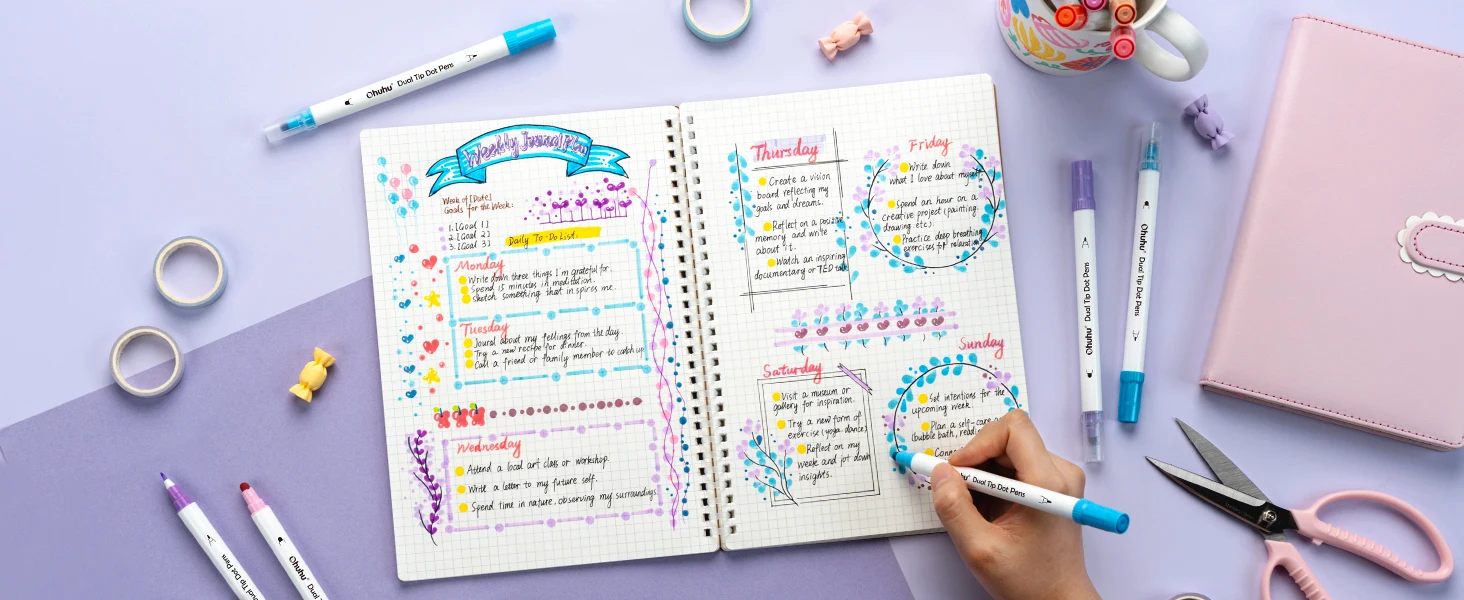 Ohuhu® Dual Tip Dot Pens
Weekly Journal Plan
Week of [Date]
Goals for the Week:
1. [Goal 1]
2. [Goal 2]
3. [Goal 3]
Daily To-Do List:
Monday
Write down three things I'm grateful for.
Spend 15 minutes in meditation.
Sketch something that inspires me.
Tuesday
Joural about my fellings from the day.
Try a new recipe for dinner.
Call a friend or family member to catch up.
Wednesday
Attend a local art class or workshop.
Write a letter to my future self.
Spend time in nature, observing my surroundings.
Thursday
Create a vision
board reflecting my
goals and dreams.
Reflect on a positive
memory and write
about it.
Watch an inspiring
documentary or TED talk
Friday
Write down
what I love about myself
Spend an hour on a
creative project (painting,
drawing, etc).
Practice deep breathing
exercises for relaxation
Saturday
Visit a museum or
gallery for inspiration.
Try a new form of
exercise (yoga, dance)
Reflect on my
week and jot down
insights.
Sunday
Set intentions for the
upcoming week.
Plan a self-care
(bubble bath,
Dual Tip Dot Pens
Ohuhu® Dual Tip Dot Pens
Ohuhu® Dual Tip Dot Pens
Dual Tip Dot Pens
Ohuhu® Dual